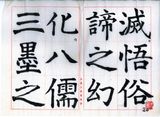 滅悟俗
諦之幻
化八儒
三墨之